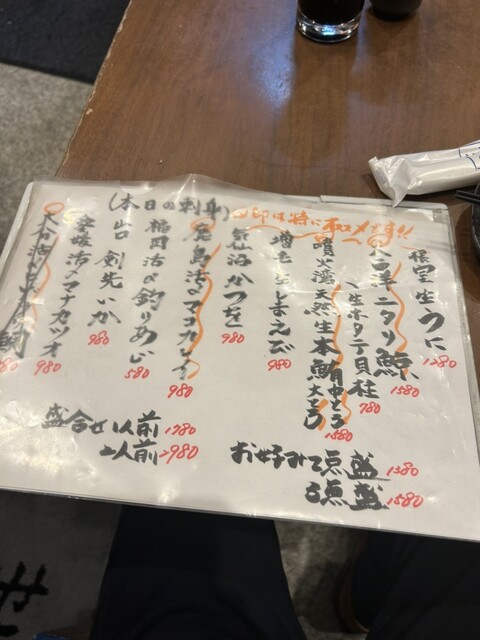 (本日の刺身)
○印は特にオススメです!!
根室生うに 1280
ニタリ鯨 1580
生ホタテ貝柱 780
噴火湾天然生本鮪 中とろ 大とろ 1880
増毛 生しまえび 980
気仙沼かつを 980
鹿島活マコカレイ 980
福岡活〆釣りあじ 580
山口 剣先いか 980
愛媛活〆マナカツオ 980
鯛
盛合せ 1人前 1780
2人前 2980
お好みで 3点盛 1380
5点盛 1580